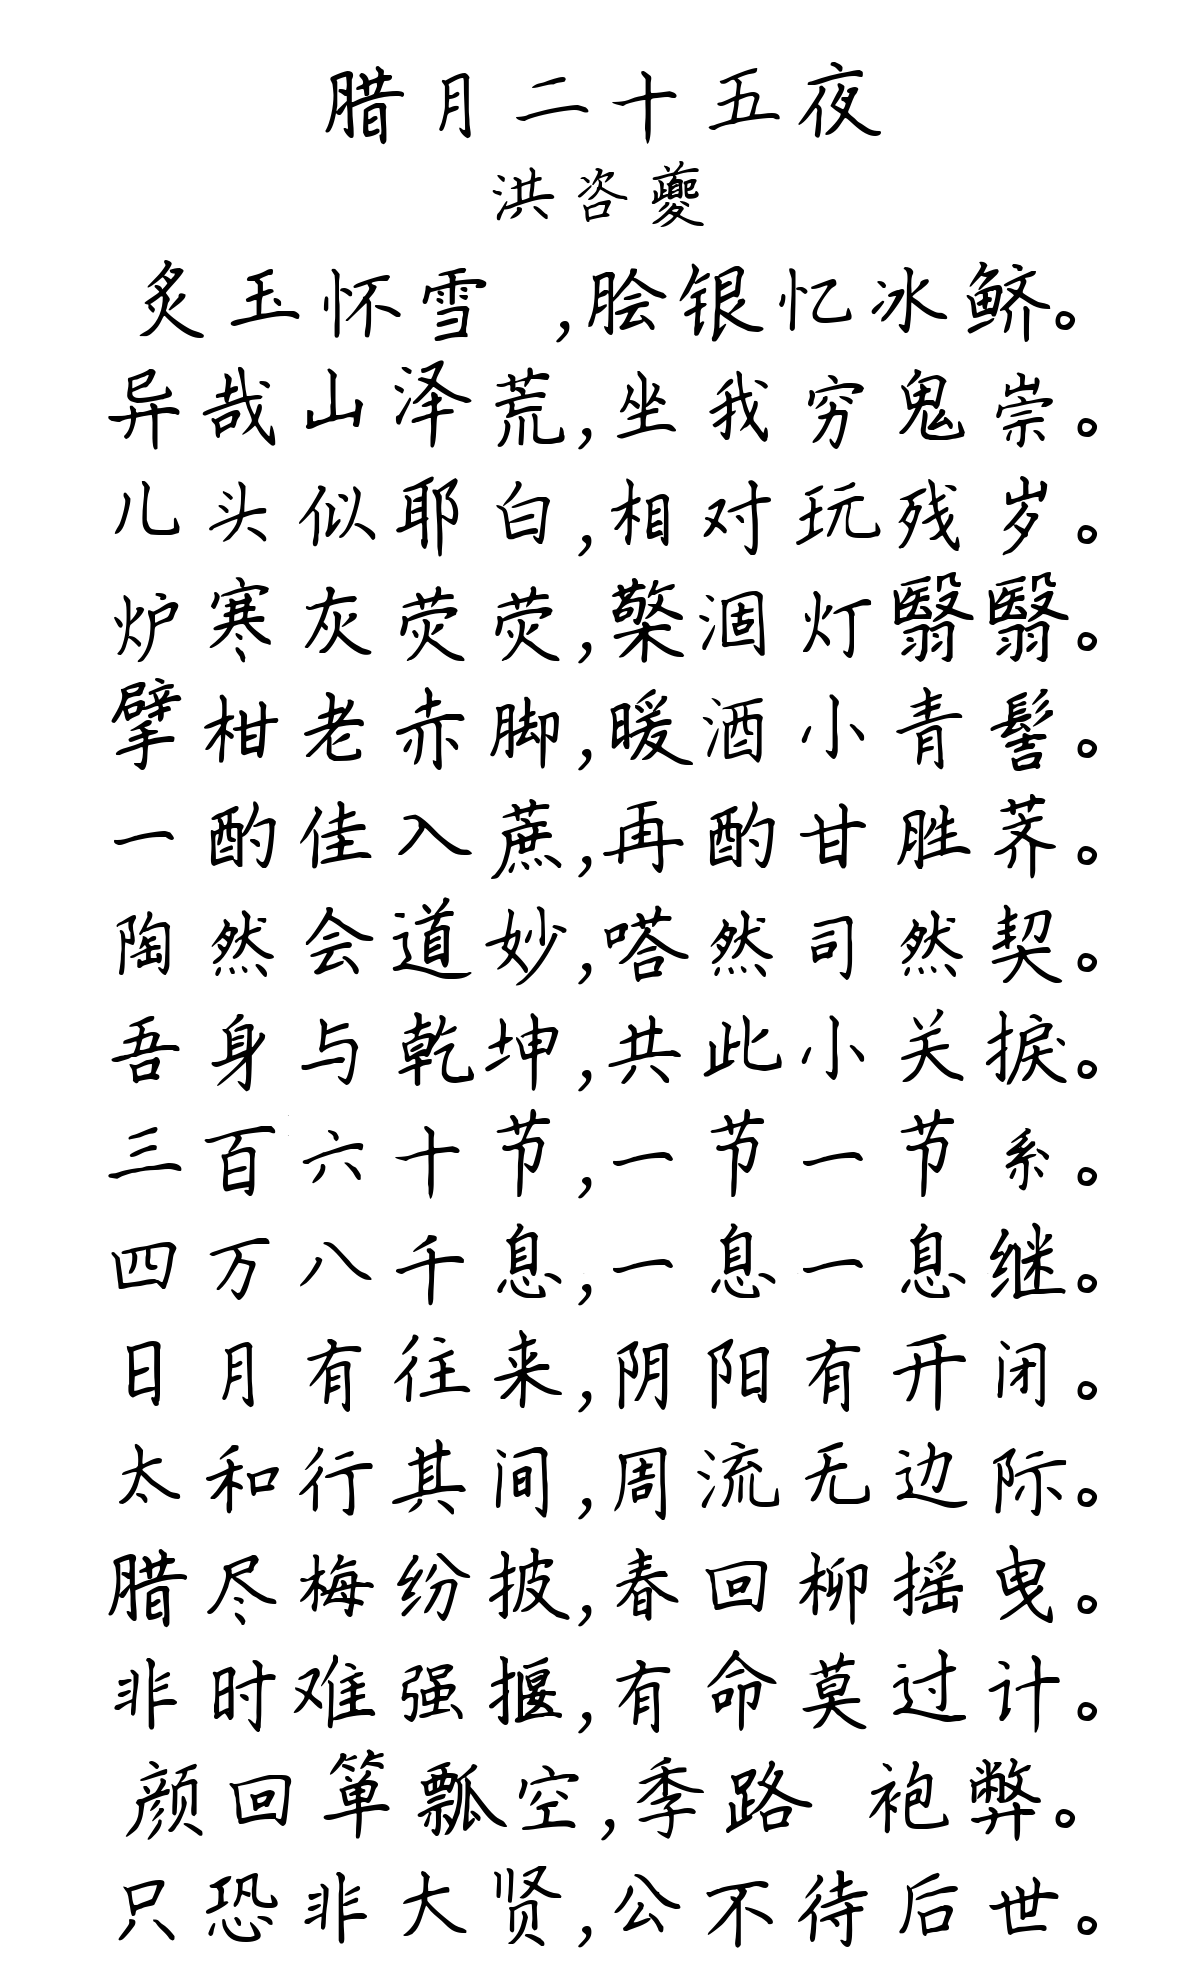 腊月二十五夜
洪咨夔
炙玉怀雪 ,脍银忆冰鲚。
异哉山泽荒,坐我穷鬼祟。
儿头似耶白,相对玩残岁。
炉寒灰荧荧,檠涸灯翳翳。
擘柑老赤脚,暖酒小青髻。
一酌佳入蔗,再酌甘胜荠。
陶然会道妙,嗒然司然契。
吾身与乾坤,共此小关捩。
三百六十节,一节一节系。
四万八千息,一息一息继。
日月有往来,阴阳有开闭。
太和行其间,周流无边际。
腊尽梅纷披,春回柳摇曳。
非时难强揠,有命莫过计。
颜回箪瓢空,季路 袍弊。
只恐非大贤,公不待后世。